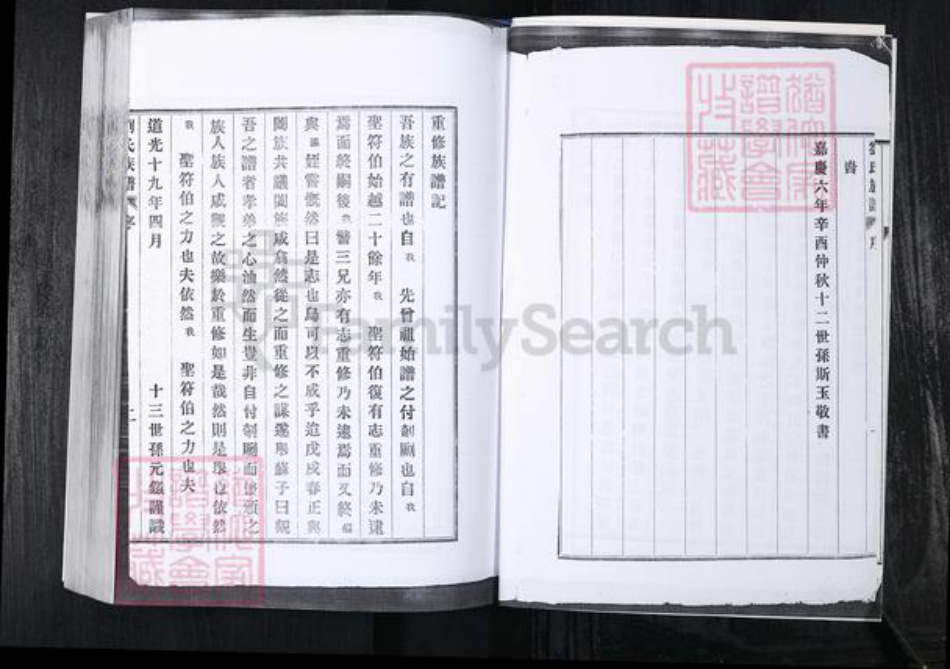 嘉慶六年辛酉仲秋十二世孫斯玉敬書
重修族譜記
吾族之有譜也自我 先曾祖始譜之付剞劂也自我
聖符伯始越二十餘年我 聖符伯復有志重修乃未逮
焉而終嗣後我 醫三兄亦有志重修乃未逮焉而又終
與 姪嘗慨然曰是志也烏可以不成乎迨戊戌春正與
闔族共議闔族咸翕然從之而重修之謀遂舉蘇子曰觀
吾之譜者孝弟之心油然而生豈非自付剞劂而
族人族人咸觀之故樂於重修如是哉然則是舉也依然
我 聖符伯之力也夫依然我 聖符伯之力也夫
道光十九年四月 十三世孫元 謹識
氏族譜 序 二
FamilySearch